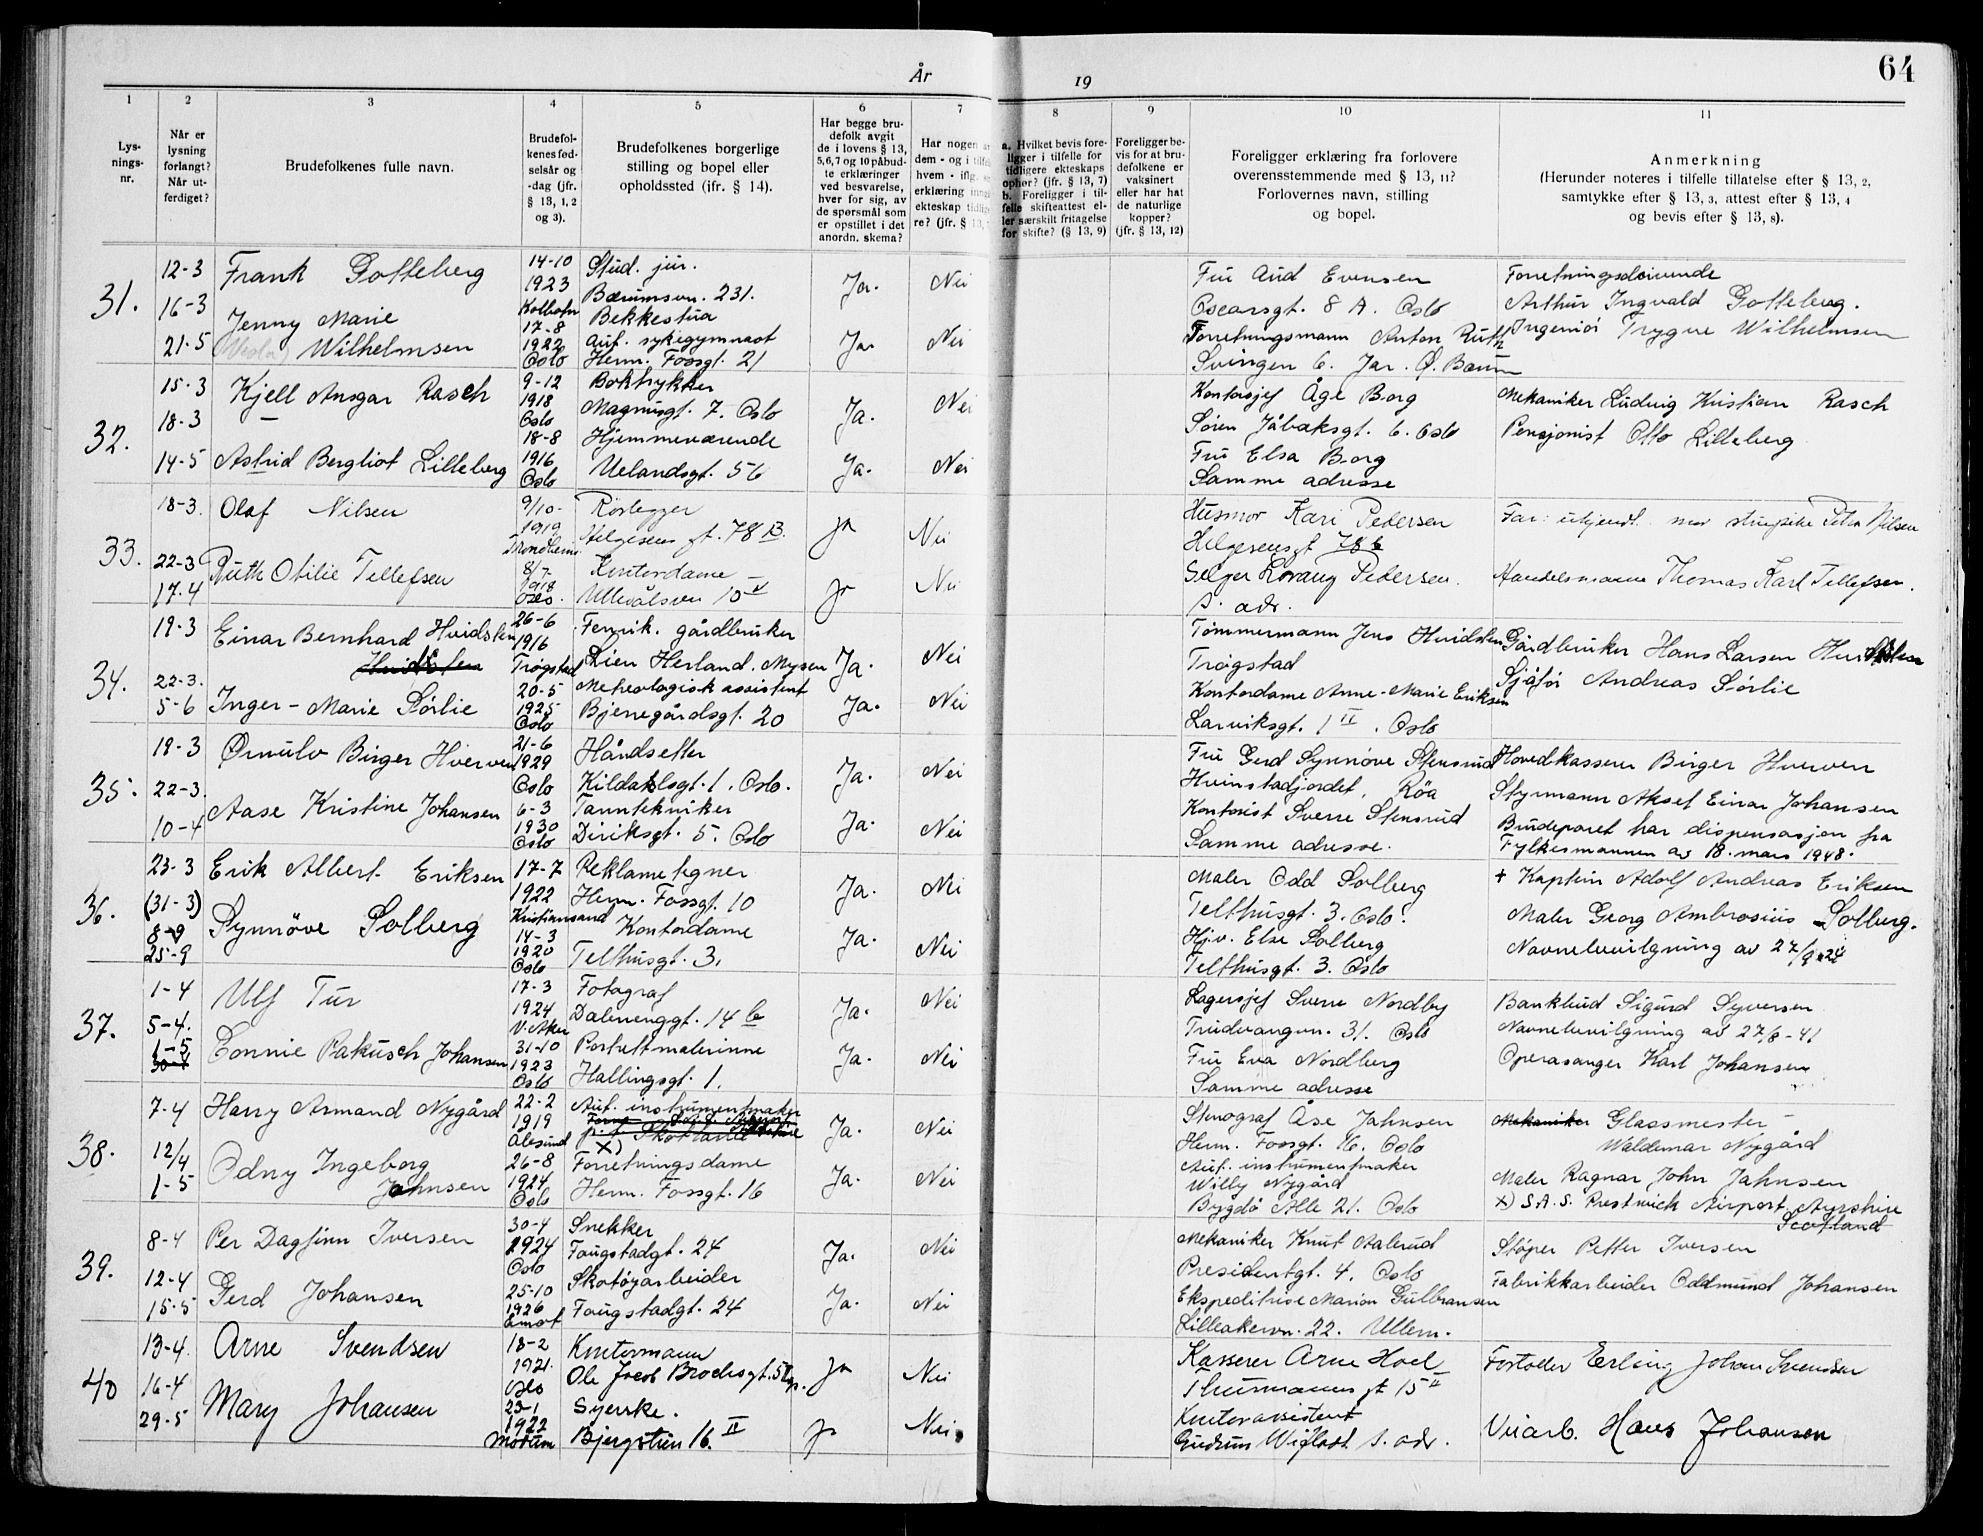 64
År 19
1 2 3 4 5 6 7 8 9 10 11
Lys-
nings-
nr.
Når er
lysning
forlangt?
Når ut-
ferdiget?
Brudefolkenes fulle navn.
Brudefol-
kenes fød-
selsår og
-dag (jfr.
§ 13, 1, 2
og 3).
Brudefolkenes borgerlige
stilling og bopel eller
opholdssted (jfr. § 14).
Har begge bru-
defolk avgit
de i lovens § 13,
5,6,7 og 10 påbud-
te erklæringer
ved besvarelse,
hver for sig, av
de spørsmål som
er opstillet i det
anordn. skema?
Har nogen av
dem - og i tilfelle
hvem - iflg.
erklæring inngått
ekteskap tidlige-
re? (jfr. § 13,
a. Hvilket bevis fore-
ligger i tilfelle for
tidligere ekteskaps
ophør? (jfr. § 13, 7)
b. Foreligger i til-
felle skifteattest el-
ler særskilt fritagelse
for skifte? (§ 13, 9)
Foreligger be-
vis for at bru-
defolkene er
vaksinert
eller har hat
de naturlige
kopper?
(jfr. § 13, 12)
Foreligger erklæring fra forlovere
overensstemmende med § 13, 11?
Forlovernes navn, stilling
og bopel.
Anmerkning
(Herunder noteres i tilfelle tillatelse efter § 13, 2,
samtykke efter § 13, 3, attest efter § 13, 4
og bevis efter § 13, 8).
31.
12-3
16-3
21-5
Frank Gotteberg
Jenny Marie
Wilhelmsen
14-10
1923
Kolbotn
17-8
1922
Oslo
Stud. jur.
Bærumsvn. 231.
Bekkestua
Aut. sykegymnast
Herm. Fossgt. 21
Ja. Nei
Ja Nei
Fru Aud Evensen
Oscarsgt. 8 A. Oslo
Forretningsmann Anton Ruth
Svingen 6. Jar. Ø. Bærum
Forretningsdrivende
Arthur Ingvald Gotteberg.
Ingeniør Trygve Wilhelmsen
32.
15-3
18-3
14-5
Kjell Ansgar Rasch
Astrid Bergliot Lilleberg
9-12
1918
Oslo
18-8
1916
Oslo
Boktrykker
Magnusgt. 7. Oslo
Hjemmeværende
Uelandsgt. 56
Ja. Nei
Ja. Nei
Kontorsjef Åge Borg
Søren Jåbæksgt. 6. Oslo
Fru Elsa Borg
Samme adresse
Mekaniker Ludvig Kristian Rasch
Pensjonist Otto Lilleberg
33.
18-3.
22-3
17.4
Olaf Nilsen
Ruth Otilie Tellefsen
9/10-
1919
Trondheim
8/7-
1918
Oslo.
Rørlegger
Helgesens gt. 78 B.
Kontordame
Ullevålsvn 10 V
Ja Nei
Ja Nei
Husmor Kari Pedersen
Helgesensgt 78 b
Selger Lorang Pedersen.
s. adr.
Far: ukjendt. mor strupike Petra Nilsen
Handelsmann Thomas Karl Tellefsen.
34.
19-3
22-3.
5-6
Einar Bernhard Hvidsten
Inger-Marie Sørlie
26-6
1916
Trøgstad
20-5
1925
Oslo
Fenrik. gårdbruker
Lien Herland. Mysen
Meteologisk assistent
Bjenegårdsgt. 20
Ja. Nei
Ja. Nei
Tømmermann Jens Hvidsten
Trøgstad
Kontordame Anne-Marie Eriksen
Larviksgt. 1 II. Oslo
Gårdbruker Hans Larsen Hvidsten
Sjåfør Andreas Sørlie
35.
19-3
22-3.
10-4
Ørnulv Birger Hverven
Aase Kristine Johansen
21-6
1929
Oslo
6-3
1930
Oslo
Håndsetter
Kildalsgt. 1. Oslo.
Tanntekniker
Diriksgt. 5. Oslo
Ja. Nei
Ja. Nei
Fru Gerd Synnøve Stensrud
Hvinstadjordet, Røa
Kontorist Sverre Stensrud
Samme adresse.
Hovedkasserer Birger Hverven
Styrmann Aksel Einar Johansen
Brudeparet har dispensasjon fra
Fylkesmannen av 18. mars 1948.
36.
23-3
(31-3)
8-9
25-9
Erik Albert Eriksen
Synnöve Solberg
17-7
1922
Kristiansand
14-3
1920
Oslo
Reklametegner
Herm. Fossgt. 10
Kontordame
Telthusgt. 3.
Ja. Nei
Ja. Nei
Maler Odd Solberg
Telthusgt. 3. Oslo.
Hjv. Else Solberg
Telthusgt. 3. Oslo
+ Kaptein Adolf Andreas Eriksen
Maler Georg Ambrosius Solberg.
Navnebevilgning av 27/9-24
37.
1-4
5-4.
1-5
30-4
Ulf Tur
Connie Pakusch Johansen
17-3
1924
V. Aker
31-10
1923
Oslo
Fotograf
Dalenenggt. 14 b
Portrettmalerinne
Hallingsgt. 1.
Ja. Nei
Ja. Nei
Lagersjef Sverre Nordby
Trudvangvn. 31. Oslo
Fru Eva Nordberg
Samme adresse
Bankbud Sigurd Syversen
Navnebevilgning av 27/8-41
Operasanger Karl Johansen
38.
7-4
12/4
1-5
Harry Armand Nygård
Odny Ingeborg
Johnsen
22-2
1919
Ålesund
26-8
1924
Oslo
Aut. instrumentmaker
x)
Forretningsdame
Herm. Fossgt. 16
Ja. Nei
Ja. Nei
Stenograf Åse Jahnsen
Herm. Fossgt. 16. Oslo
Aut. instrumentmaker
Willy Nygård
Bygdö Alle 21. Oslo
Mekaniker Glassmester
Waldemar Nygård
Maler Ragnar John Jahnsen
x) S.A.S. Prestwick Airport. Ayrshire
Scotland
39.
8-4
12-4
15-5
Per Dagfinn Iversen
Gerd Johansen
30-4
1924
Oslo
25-10
1926
Snekker
Fougstadgt. 24
Skotøyarbeider
Fougstadgt. 24
Ja. Nei
Ja. Nei
Mekaniker Knut Aalerud
Presidentgt. 4. Oslo
Ekspeditrise Marion Gulbransen
Lilleakervn. 22. Ullern.
Støper Petter Iversen
Fabrikkarbeider Oddmund Johansen
40
13-4.
16-4
29-5
Arne Svendsen
Mary Johansen
18-2
1921.
Oslo
23-1
1922
Modum
Kontormann
Ole Jacob Brochsgt. 5
Syerske.
Bjergstien 16. II
Ja Nei
Ja Nei.
Kasserer Arne Hoel
Thurmanns gt 15 II
Kontorassistent
Gudrun s. adr.
Fortolder Erling Johan Svendsen
Hans Johansen